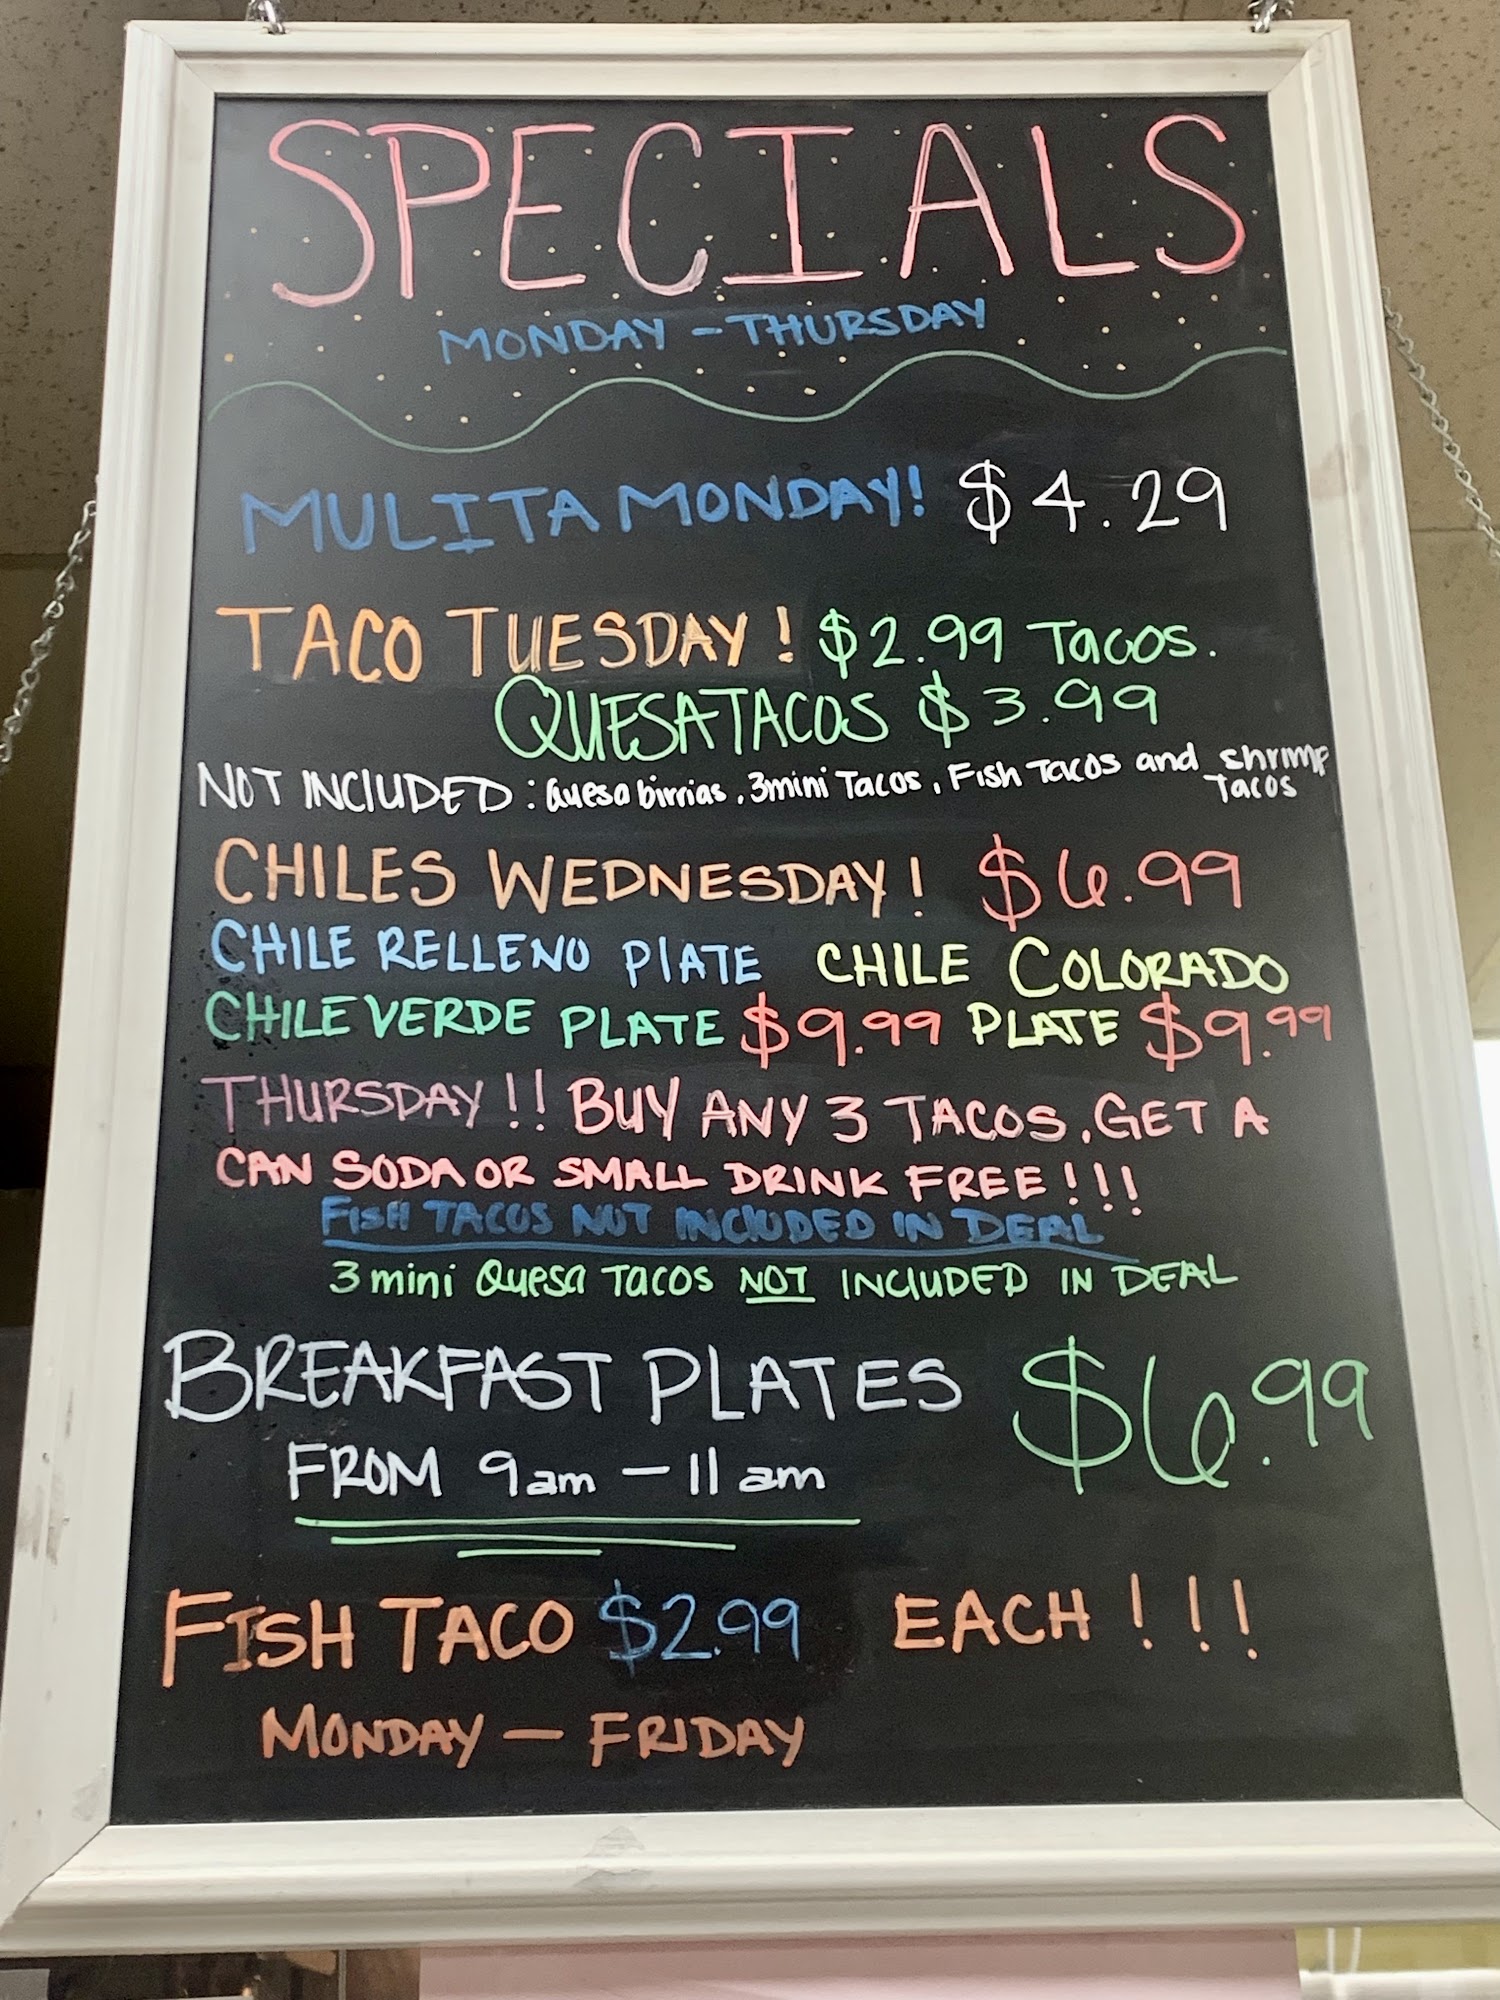 SPECIALS
MONDAY - THURSDAY
MULITA MONDAY! $4.29
TACO TUESDAY! $2.99 Tacos.
QUESATACOS $3.99
NOT INCLUDED: Quesabirrias, 3mini Tacos, Fish Tacos and shrimp
Tacos
CHILES WEDNESDAY! $6.99
CHILE RELLENO PLATE CHILE COLORADO
CHILE VERDE PLATE $9.99 PLATE $9.99
THURSDAY!! BUY ANY 3 TACOS, GET A
CAN SODA OR SMALL DRINK FREE!!!
FISH TACOS NOT INCLUDED IN DEAL
3 mini Quesa TACOS NOT INCLUDED IN DEAL
BREAKFAST PLATES $6.99
FROM 9am - 11am
FISH TACO $2.99 EACH!!!
MONDAY - FRIDAY